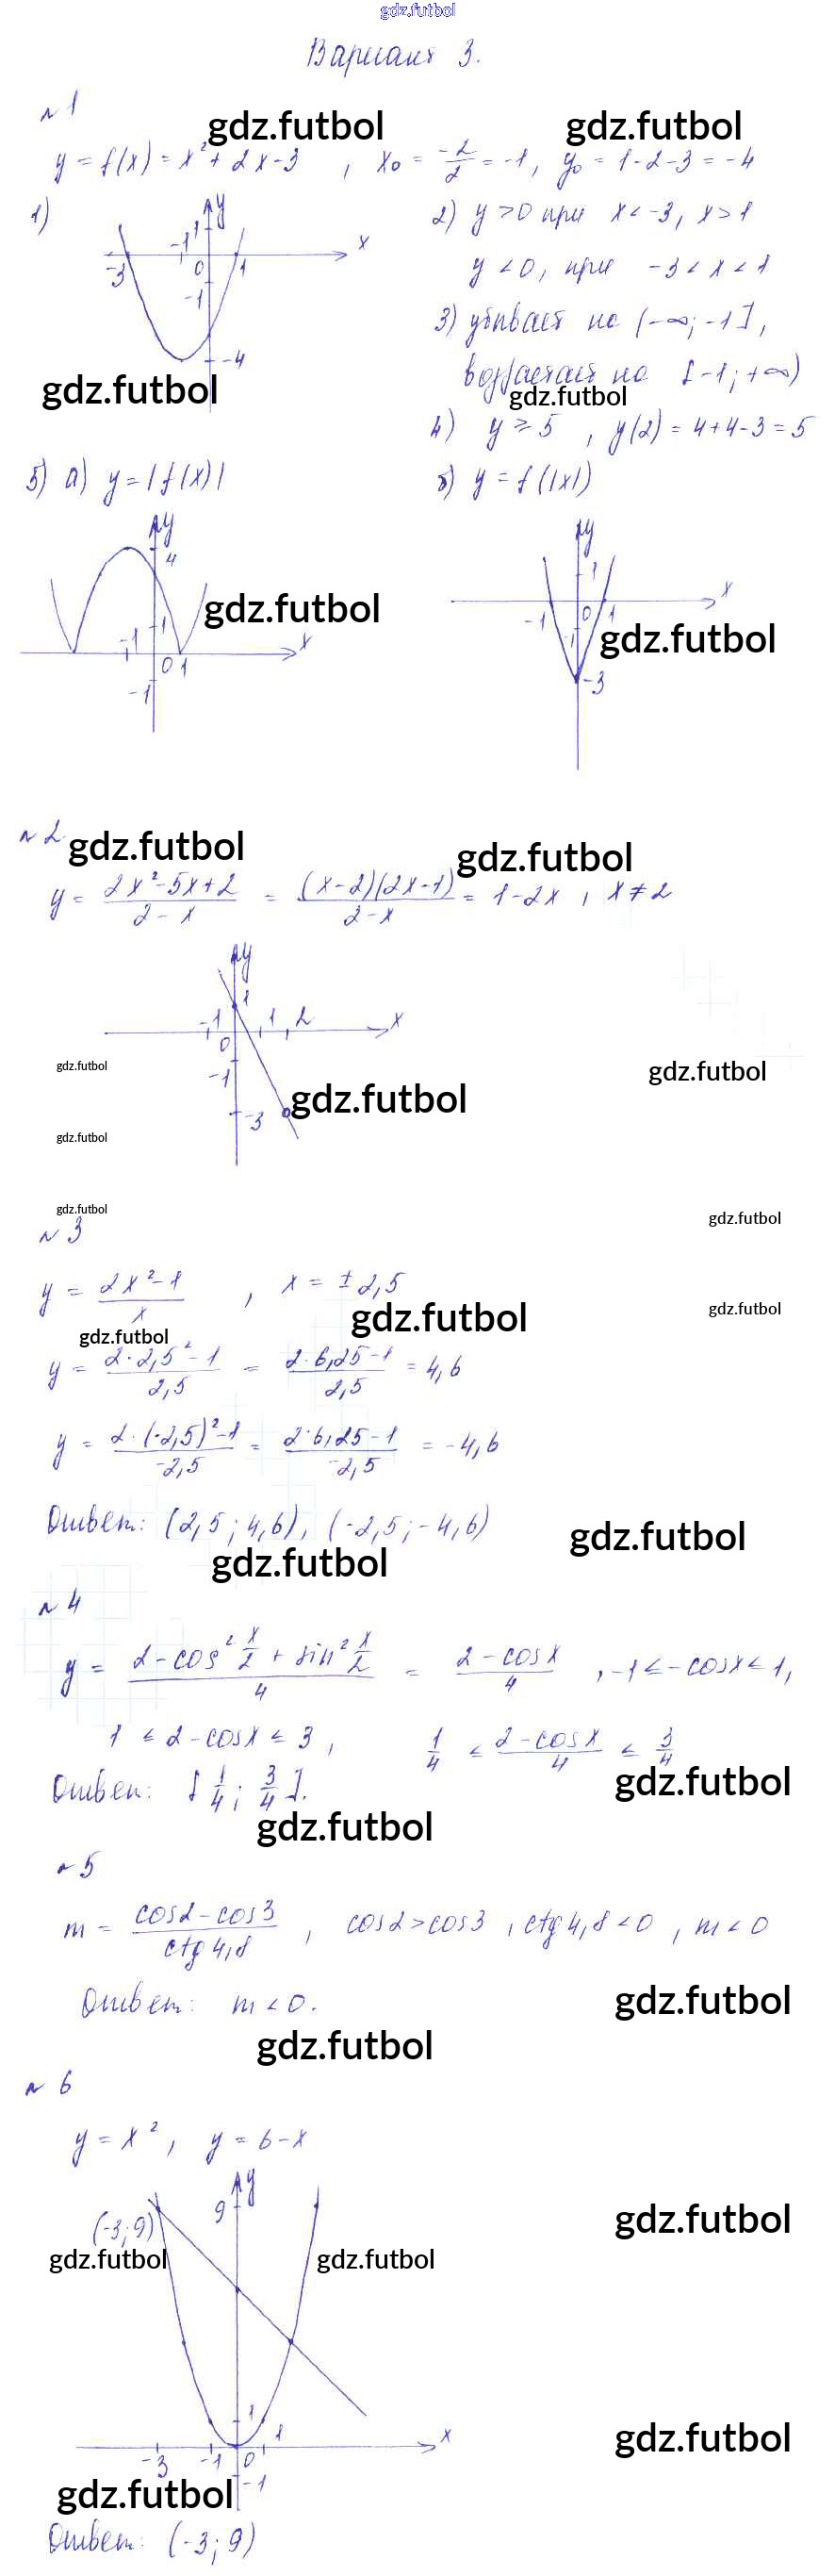 gdz.futbol
Вариант 3.
№1
gdz.futbol gdz.futbol
y = f(x) = x² + 2x - 3 , x₀ = -2/2 = -1, y₀ = 1-2-3 = -4
1) y 2) y > 0 при x < -3, x > 1
1 -1 x
-3 0 1 y < 0, при -3 < x < 1
-1
3) убывает на (-∞; -1],
-4
возрастает на [-1; +∞)
gdz.futbol gdz.futbol
4) y ≥ 5 , y(2) = 4+4-3 = 5
5) а) y = |f(x)| б) y = f(|x|)
y y
4
1 x
gdz.futbol
-1 0 1
-1 1 x -1 gdz.futbol
0 1
-1 -3
№2
gdz.futbol gdz.futbol
y = (2x²-5x+2)/(2-x) = ((x-2)(2x-1))/(2-x) = 1-2x , x ≠ 2
y
1
-1 1 2 x
0
gdz.futbol -1 gdz.futbol
gdz.futbol
-3
gdz.futbol
gdz.futbol
gdz.futbol
№3
y = (2x²-1)/x , x = ±2,5
gdz.futbol gdz.futbol
gdz.futbol
y = (2·2,5²-1)/2,5 = (2·6,25-1)/2,5 = 4,6
y = (2·(-2,5)²-1)/-2,5 = (2·6,25-1)/-2,5 = -4,6
Ответ: (2,5; 4,6), (-2,5; -4,6)
gdz.futbol
gdz.futbol
№4
y = (2-cos² x/2 + sin² x/2)/4 = (2-cosx)/4 , -1 ≤ -cosx ≤ 1,
1 ≤ 2-cosx ≤ 3, 1/4 ≤ (2-cosx)/4 ≤ 3/4
Ответ: [1/4; 3/4].
gdz.futbol
gdz.futbol
№5
m = (cos2-cos3)/ctg4,8 , cos2 > cos3 , ctg4,8 < 0 , m < 0
Ответ: m < 0.
gdz.futbol
gdz.futbol
№6
y = x², y = 6-x
y
9
(-3; 9) gdz.futbol
gdz.futbol gdz.futbol
1 1 x
-3 -1 0
gdz.futbol
-1
gdz.futbol
Ответ: (-3; 9)